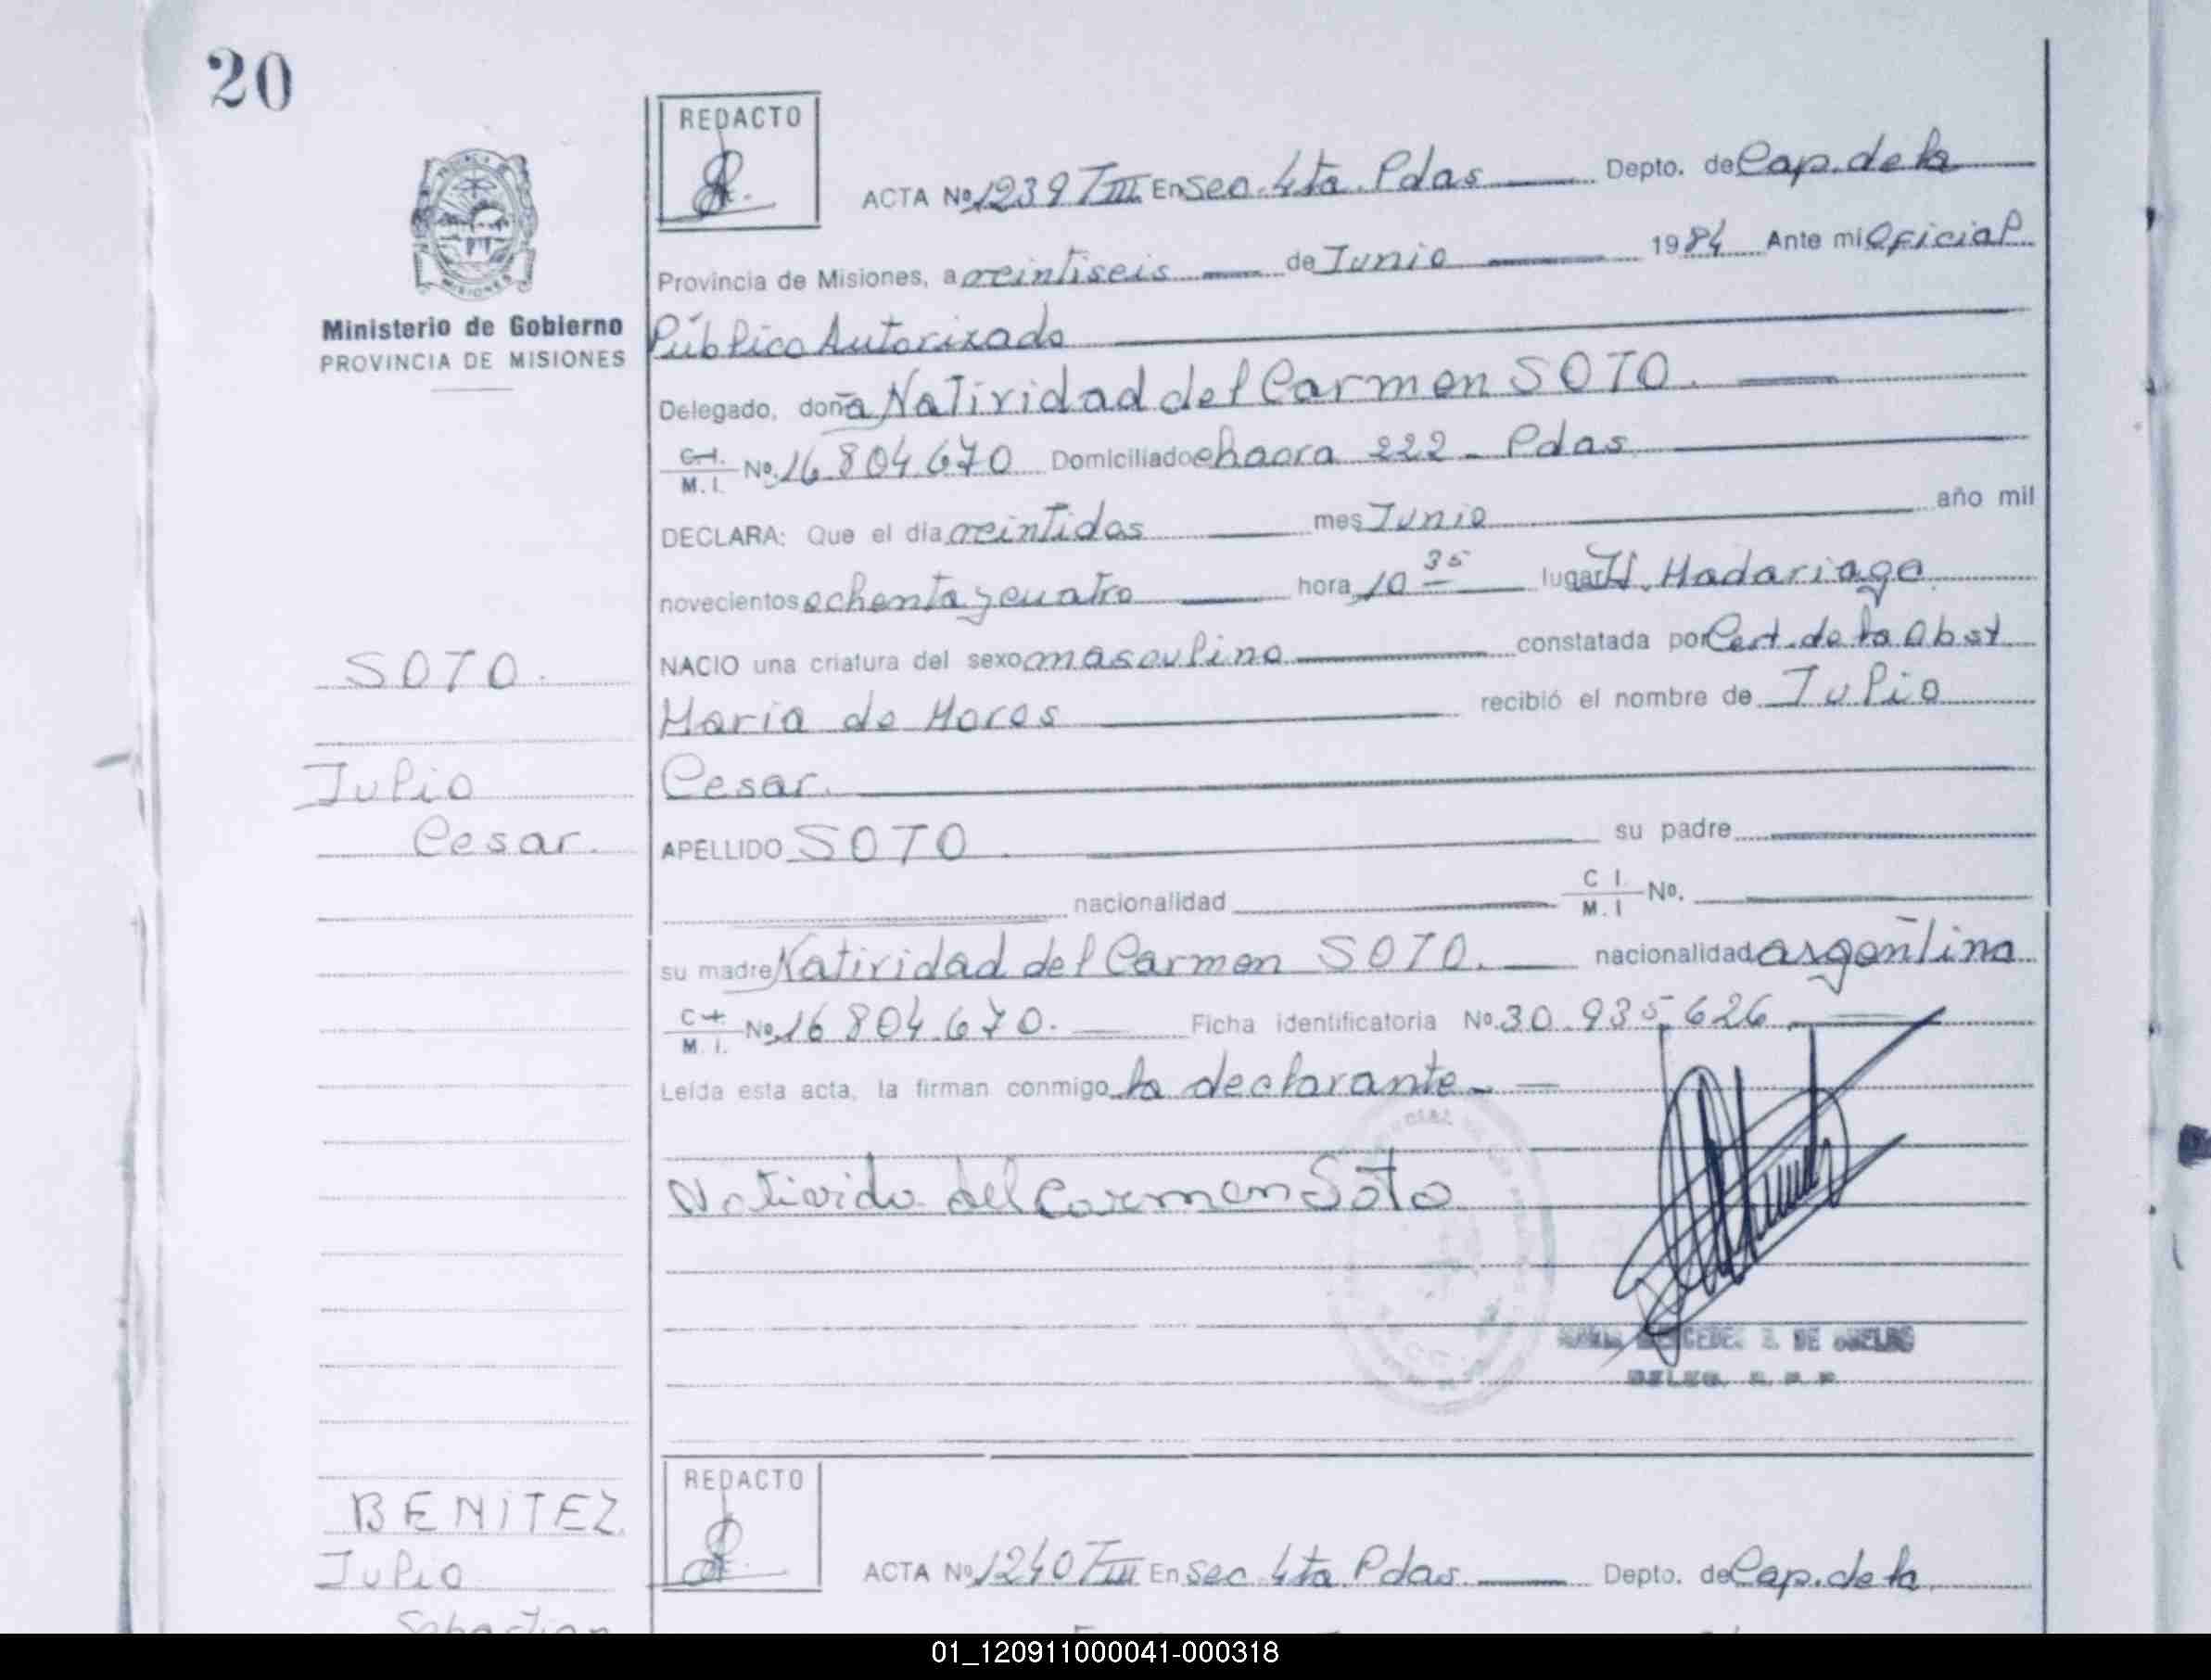 20
REDACTO
ACTA Nº 1239 TIII En Sec. 4ta. Pdas Depto. de Cap. de la
Provincia de Misiones, a veintiseis de Junio 1984 Ante mi Oficial
Público Autorizado
Ministerio de Gobierno
PROVINCIA DE MISIONES
Delegado, doña Natividad del Carmen SOTO.
C.I. M.I. Nº 16.804.670 Domiciliado chacra 222 - Pdas
DECLARA: Que el día veintidos mes Junio año mil
novecientos ochenta y cuatro hora 10 35 lugar H. Madariaga
NACIO una criatura del sexo masculino constatada por Cert. de la Obst
SOTO.
Maria de Mores recibió el nombre de Julio
Julio
Cesar.
Cesar.
APELLIDO SOTO su padre
nacionalidad C I. M. I Nº.
su madre Natividad del Carmen SOTO. nacionalidad argentina
C I. M. I. Nº 16.804.670. Ficha identificatoria Nº 30.935.626
Leída esta acta, la firman conmigo la declarante
Natividad del Carmen Soto
DE
BENITEZ
Julio
Sebastian
REDACTO
ACTA Nº 1240 TIII En Sec. 4ta. Pdas Depto. de Cap. de la
01_120911000041-000318